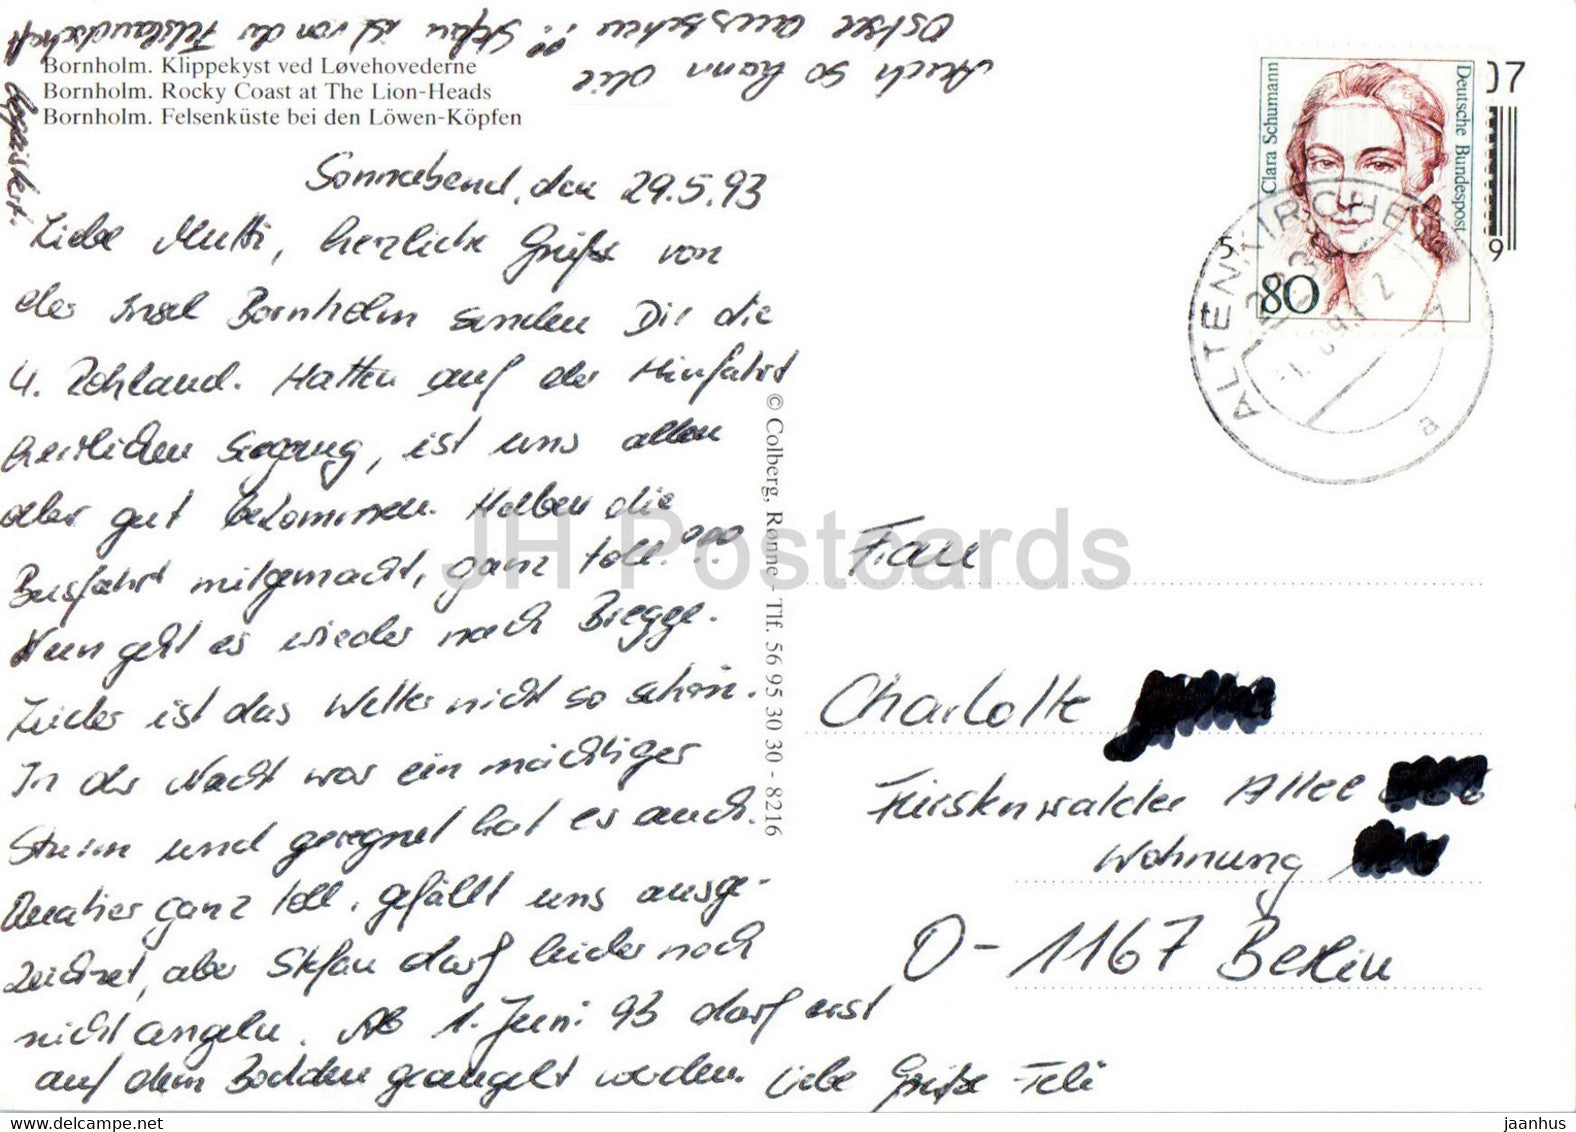 Auch so kann die
Ostsee aussehen !! Stefan ist von der Felslandschaft
begeistert.
Bornholm. Klippekyst ved Løvehovederne
Bornholm. Rocky Coast at The Lion-Heads
Bornholm. Felsenküste bei den Löwen-Köpfen
Sonnabend, den 29.5.93
Liebe Mutti, herzliche Grüße von
der Insel Bornholm senden Dir die
4. Zehland. Hatten auf der Hinfahrt
herrlichen Seegang, ist uns allen
aber gut bekommen. Haben die
Busfahrt mitgemacht, ganz toll.
Nun geht es wieder nach Breege.
Leider ist das Wetter nicht so schön.
In der Nacht war ein mächtiger
Sturm und geregnet hat es auch.
Quatier ganz toll, gefällt uns ausge-
zeichnet, aber Stefan darf leider noch
nicht angeln. Ab 1. Juni 93 darf erst
auf dem Bodden geangelt werden. Liebe Grüße
© Colberg, Rønne - Tlf. 56 95 30 30 - 8216
Clara Schumann
Deutsche Bundespost
80
07
5
9
ALTENKIRCHEN
a
Frau
Charlotte
Fürstenwalder Allee
Wohnung
O-1167 Berlin
JH Postcards
delcampe.net
jaanhus